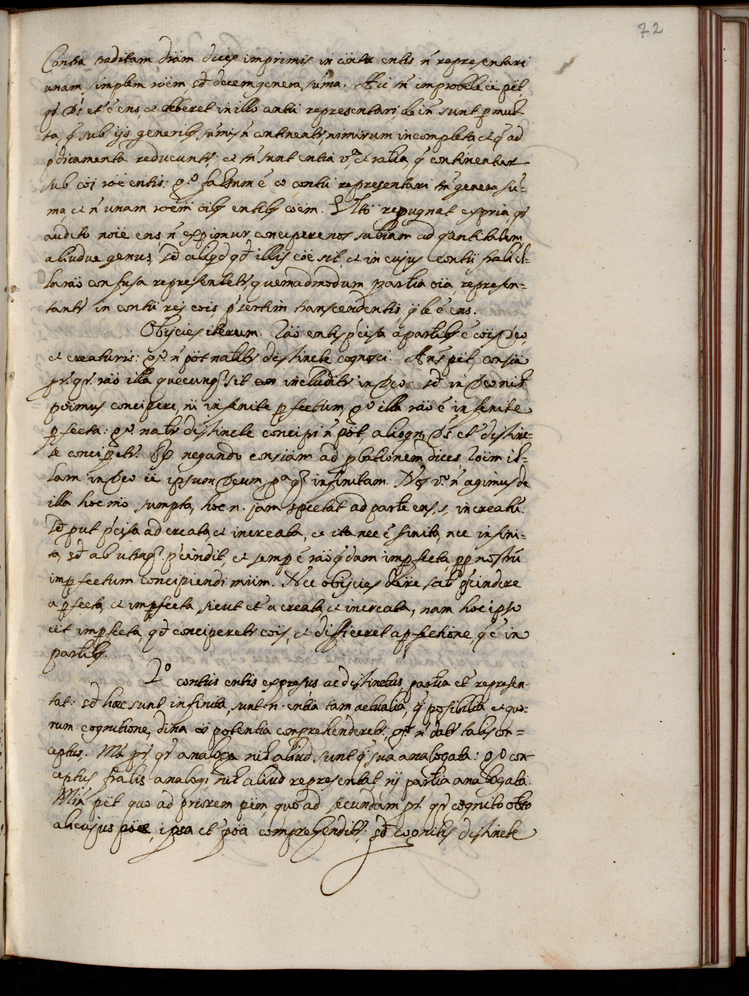 72
Contra traditam dräm dices imprimis in cöctu entis ñ representari
unam simplem röem sed decem genera suma. Ac ñ improbile ëe pët
qª Ds et ë ens et deberet in illo öntü representari ñ sunt p mul
ta q sub ijs generibꝫ sumis ñ continentr nimirum incompleta, et q ad
pdicamenta reducuntr et tñ sunt entia vª et realia q continentur
sub cöi röe entis: gº falsum ë eo contü representari tñ genera su=
ma et ñ unam röem öibꝫ entibꝫ cöem. Ultö repugnat expria qª
audito nöie ens ñ expimur concipere nos substiam ad quantitatem
aliudve genus, sed aliqd qd illis cöe sit, et in cujus contü
laräo confusa representetr quemadmodum partia öia represen=
tantr in contü rej cöis psertim transcendentis qle ë ens.
Objicies iterum. Räo entis pcisa a partibꝫ ë cöis Deo
et creaturis: gº ñ pöt naturalitr distincte cognosci. Añs pët consia
pr qª räo illa quecunqꝫ sit includitr in Deo sed in Deo nihil
possumus concipere, ni infinite pfectum gº illa räo ë infinite
pfecta: gº natr distincte concipi ñ pöt, alioqn Ds et distinc=
te concipetr. Rº negando consiam ad pbationem dices röem il=
lam in Deo ëe ipsum Deum pª qª infinitam. Nos vº ñ agimus de
illa hoc mö sumpta, hoc ñ. jam spectat ad parte ens, s. increatü.
sed put pcisa ad creata, et increata, et ita nec ë finita, nec infini=
ta, sed ab utraqꝫ pscindit et semp ë räo qdam impfecta pp nostrü
impfectum concipiendi müm. Nec objicies dëre pscindere
a pfecta, et impfecta sicut et a creata, et increata, nam hoc ipso
ëet impfecta, qd conciperetr cöis, et difficeret a pfectione, q ë in
partibꝫ.
2º contüs entis expressus ac distinctus partia et represen=
tat: sed hæc sunt infinita, sunt ñ. entia tam actualia, q possibilia et quo=
rum cognitione, divina öis potentia comprehenderetr: gº ñ datr talis con=
ceptus. Ma pr qª analoga nihil aliud sunt q sua analogata: gº con
ceptus fralis analogi nihil aliud representat, nisi partia analogata.
Min pët quo ad priorem pëm, quo ad secundam pr. qª cognito öbto
alicujus pöæ, ipsa et pöa comprehenditr; sed cognitis distincte